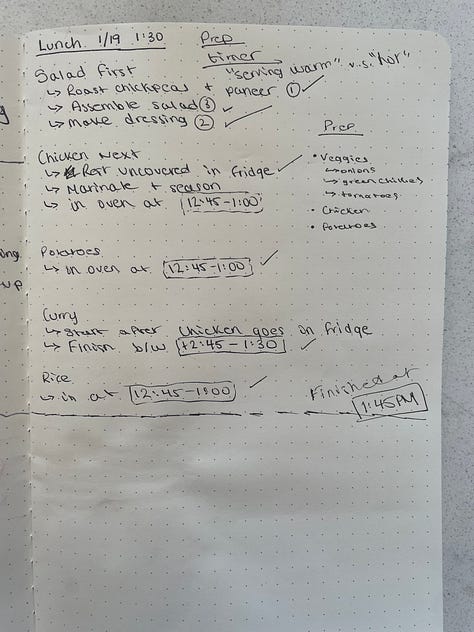 Lunch 1/19 1:30
Prep
timer
"serving warm" v.s. "hot"
Salad first
↳ Roast chickpeas + paneer ①
↳ Assemble salad ③
↳ make dressing ②
Prep
• Veggies
↳ onions
↳ green chillies
↳ tomatoes
• Chicken
• Potatoes
Chicken Next
↳ Rest uncovered in fridge
↳ Marinate + season
↳ in oven at 12:45-1:00
Potatoes
↳ in oven at 12:45-1:00
Curry
↳ Start after chicken goes in fridge
↳ Finish b/w 12:45 - 1:30
Rice
↳ in at 12:45-1:00
Finished at
1:45PM